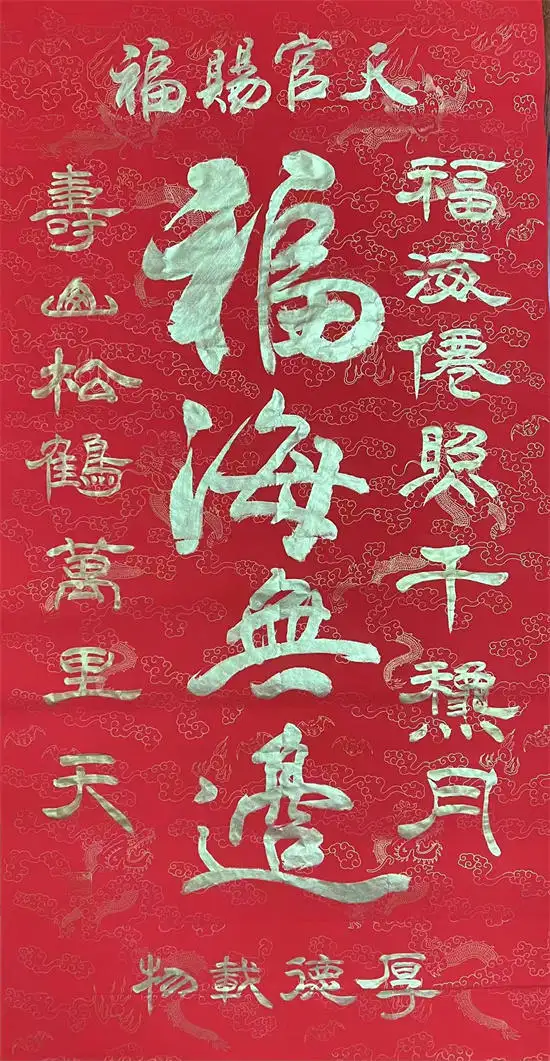 天官賜福
福海僊照千龝月
福海無邊
壽山松鶴萬里天
厚德載物